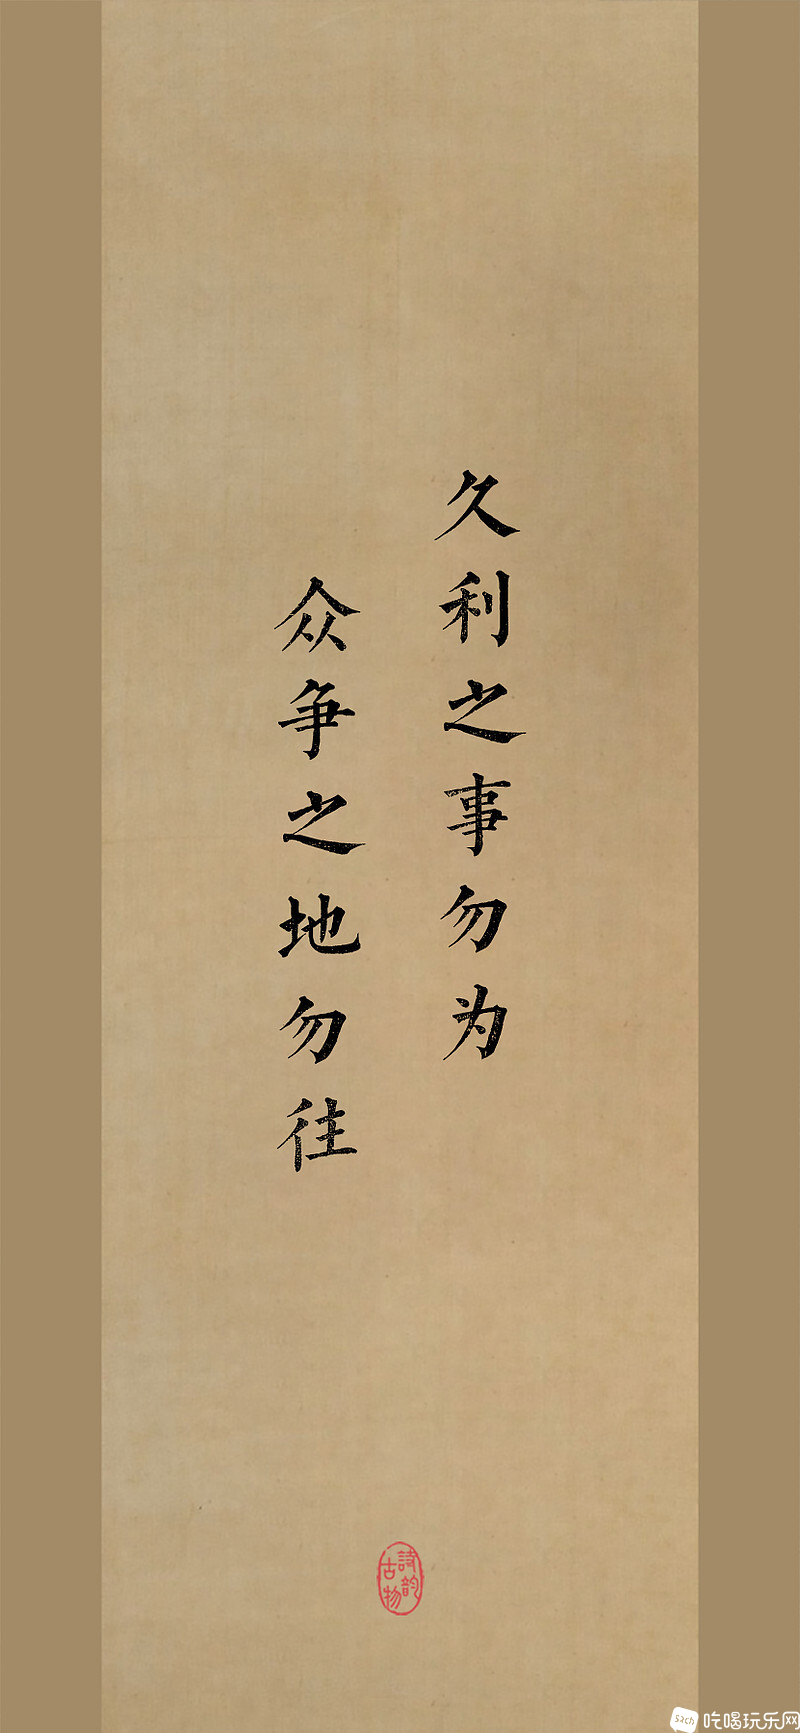 久利之事勿为
众争之地勿往
詩韵
古物
52ch 吃喝玩乐网